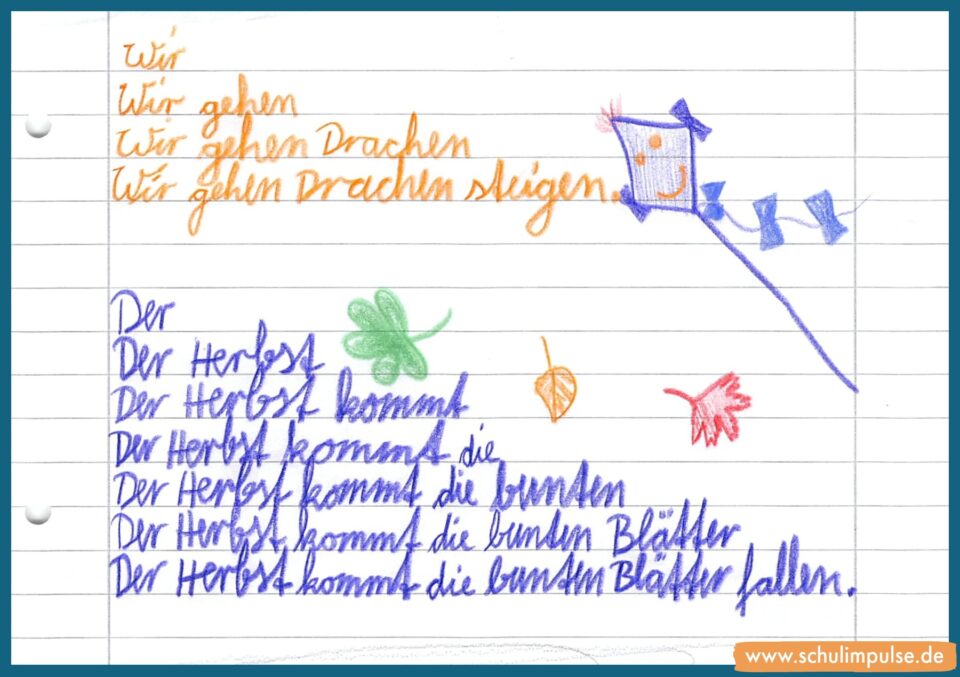 Wir
Wir gehen
Wir gehen Drachen
Wir gehen Drachen steigen.
Der
Der Herbst
Der Herbst kommt
Der Herbst kommt die
Der Herbst kommt die bunten
Der Herbst kommt die bunten Blätter
Der Herbst kommt die bunten Blätter fallen.
www.schulimpulse.de